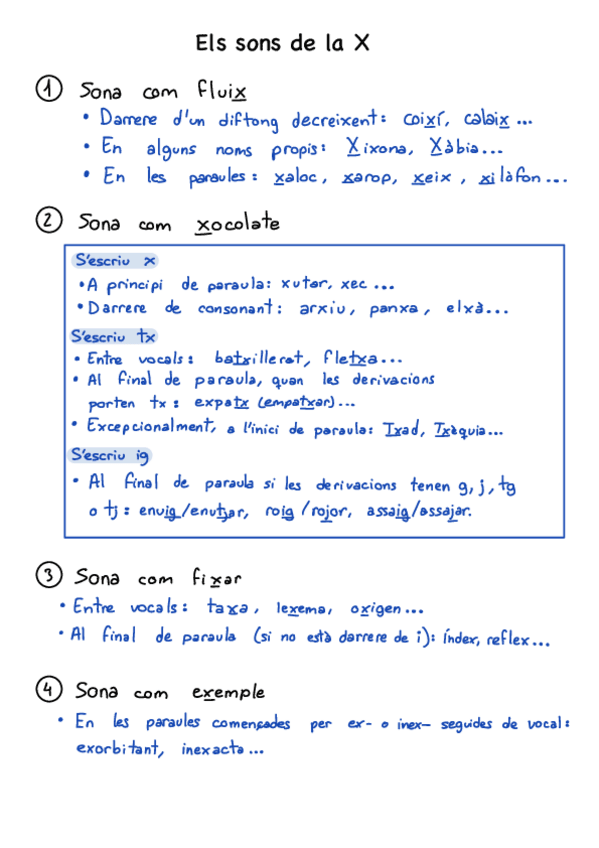 Els sons de la X
1 Sona com fluix
• Darrere d'un diftong decreixent: coixí, calaix ...
• En alguns noms propis: Xixona, Xàbia...
• En les paraules: xaloc, xarop, xeix, xilòfon...
2 Sona com xocolate
S'escriu x
• A principi de paraula: xutar, xec ...
• Darrere de consonant: arxiu, panxa, elxà...
S'escriu tx
• Entre vocals: batxillerat, fletxa...
• Al final de paraula, quan les derivacions
porten tx: empatx (empatxar)...
• Excepcionalment, a l'inici de paraula: Txad, Txèquia...
S'escriu ig
• Al final de paraula si les derivacions tenen g, j, tg
o tj: enuig/enutjar, roig/rojor, assaig/assajar.
3 Sona com fixar
• Entre vocals: taxa, lexema, oxigen...
• Al final de paraula (si no està darrere de i): índex, reflex...
4 Sona com exemple
• En les paraules començades per ex- o inex- seguides de vocal:
exorbitant, inexacta...